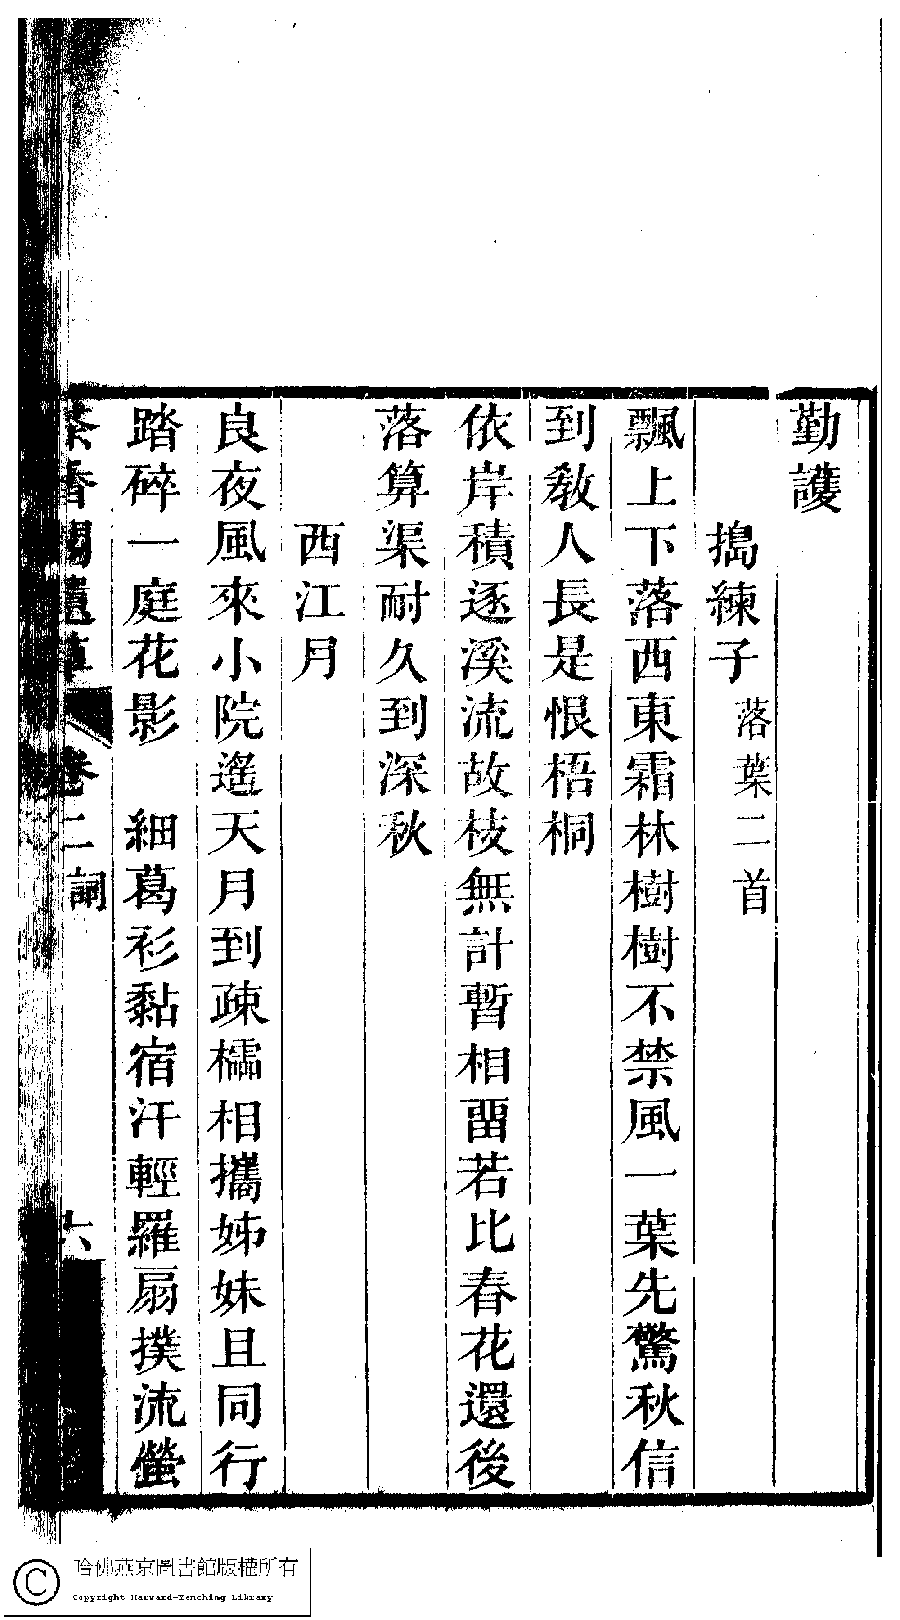 勤護
搗練子 落葉二首
飄上下落西東霜林樹樹不禁風一葉先驚秋信
到敎人長是恨梧桐
依岸積逐溪流故枝無計暫相畱若比春花還後
落算渠耐久到深秋
西江月
良夜風來小院遙天月到疎櫺相攜姊妹且同行
踏碎一庭花影 細葛衫黏宿汗輕羅扇撲流螢
茶香閣遺草 卷二詞 六
哈佛燕京圖書館版權所有
Copyright Harvard-Yenching Library